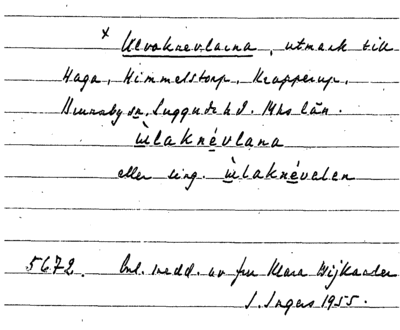 x Ulvaknevlarna, utmark till
Haga, Himmelstorp, Krapperup,
Brunnby sn, Luggude hd. Mhs län.
ùlaknévlana
eller sing. ùlaknévalen
5672. Enl. medd. av fru Klara Wijkander
I. Ingers 1955.